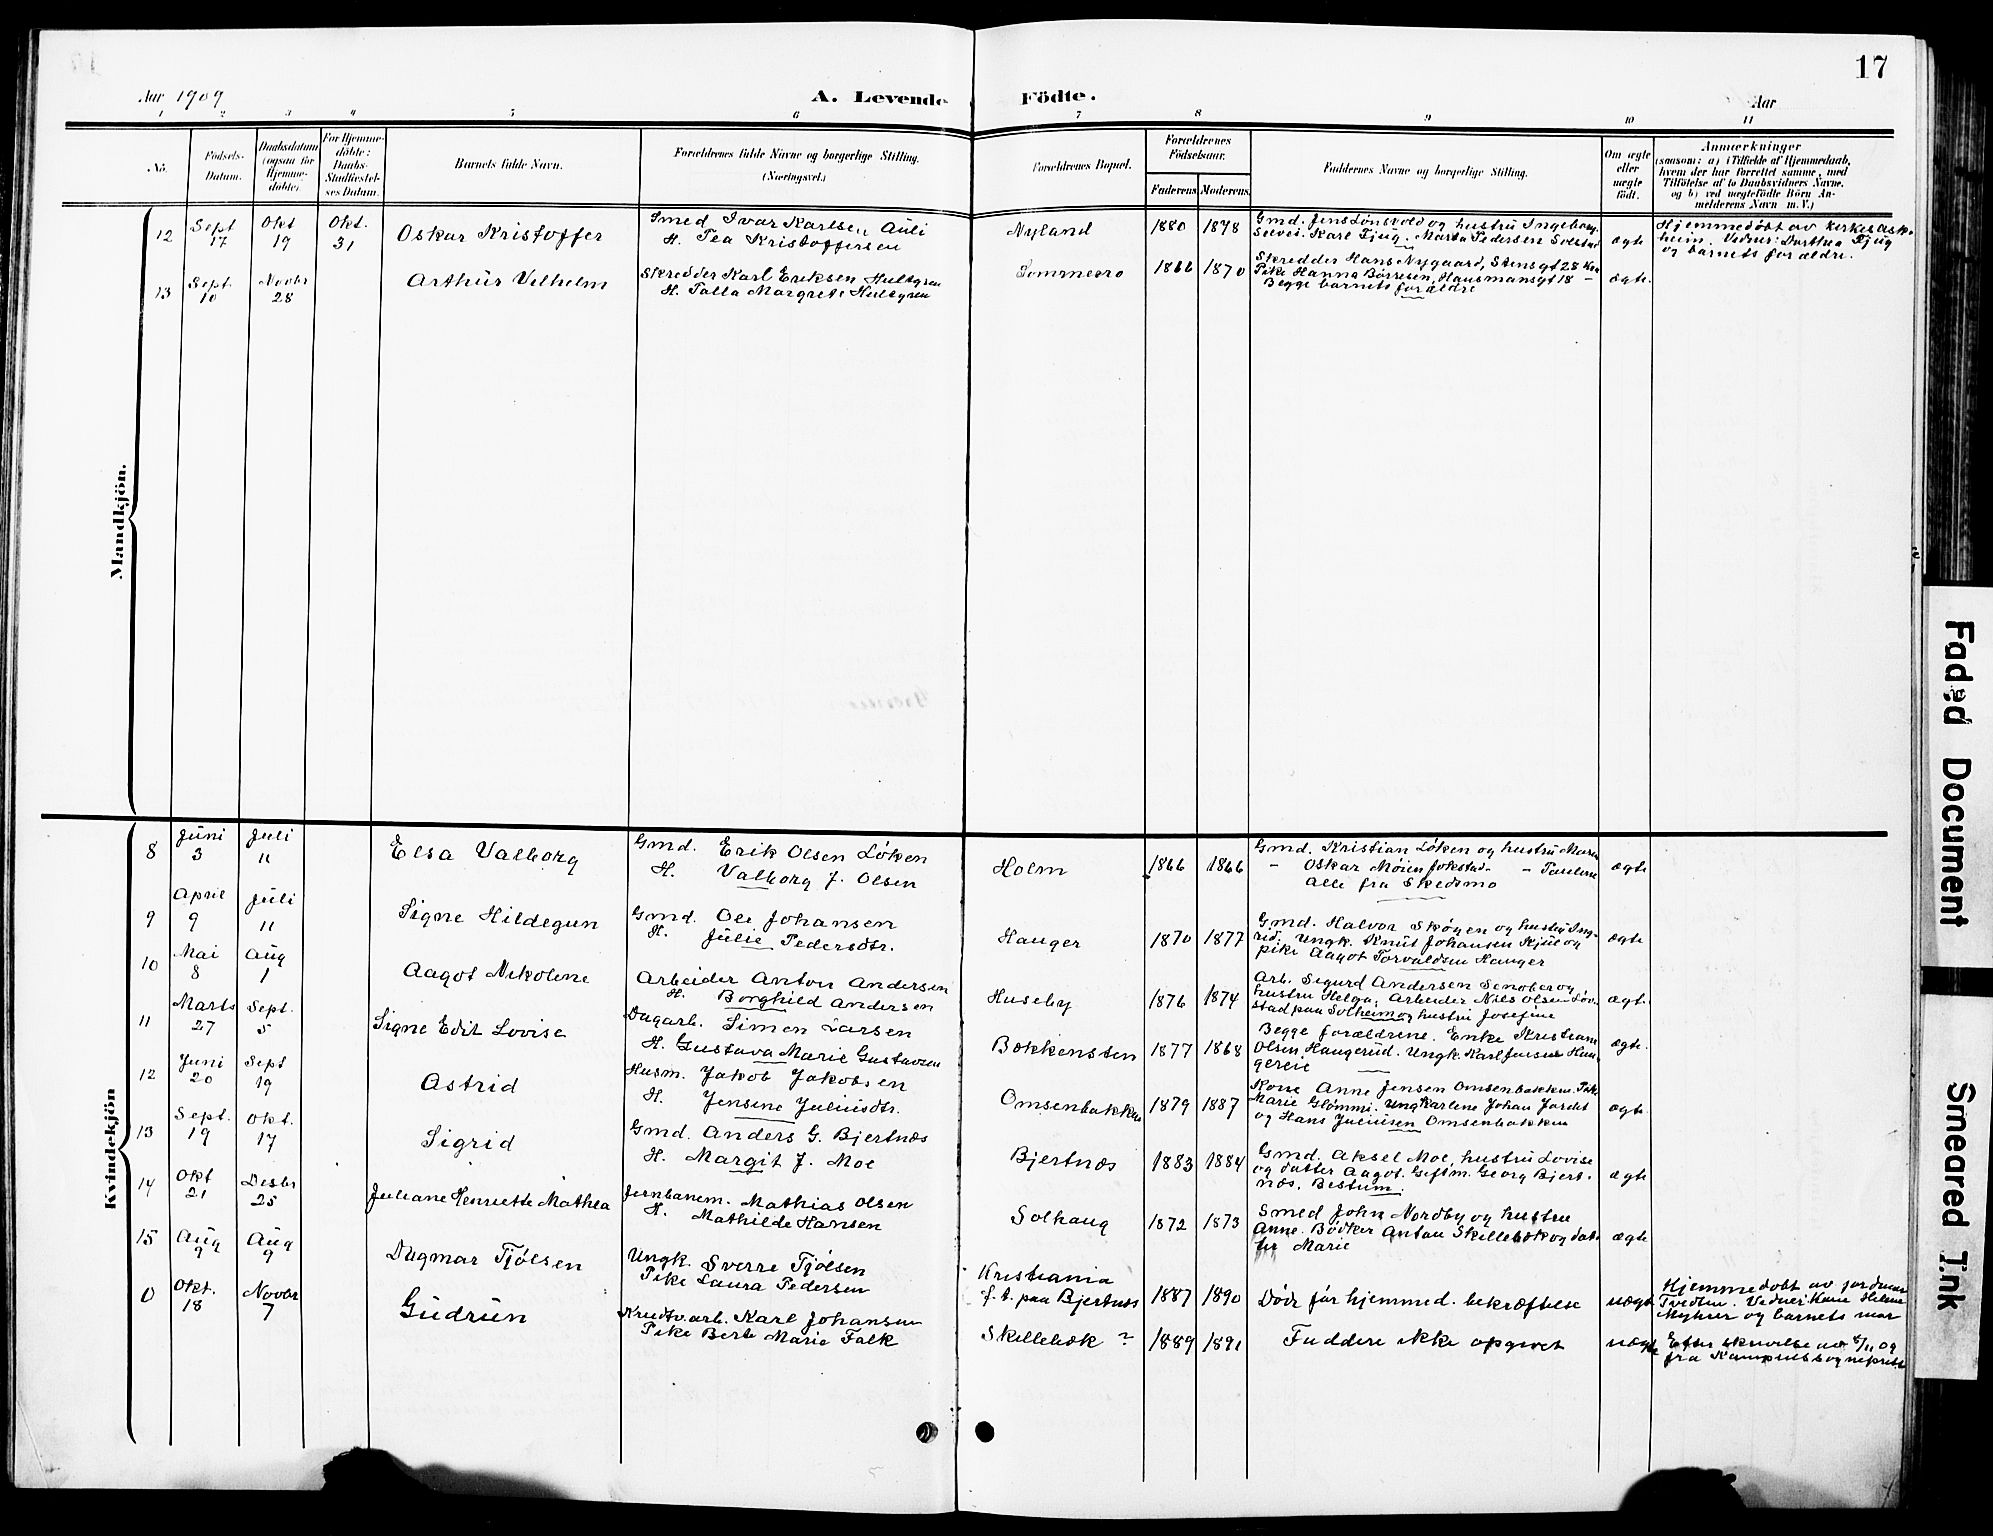 17
Aar 1909
A. Levende Födte.
Aar
1 2 3 4 5 6 7 8 9 10 11
No.
Fødsels-Datum.
Daabsdatum (ogsaa for Hjemmedøbte).
For Hjemmedöbte: Daabs-Stadfæstelses Datum.
Barnets fulde Navn.
Forældrenes fulde Navne og borgerlige Stilling. (Næringsvei.)
Forældrenes Bopæl.
Forældrenes Födselsaar.
Faderens. Moderens.
Faddernes Navne og borgerlige Stilling.
Om ægte eller uægte födt.
Anmærkninger
(saasom: a) i Tilfælde af Hjemmedaab, hvem der har forrettet samme, med Tilföielse af to Daabsvidners Navne, og b) ved uægtefödte Börn Anmelderens Navn m. V.)
Mandkjön.
12 Sept 17 Okt 19 Okt. 31 Oskar Kristoffer
Smed Ivar Karlsen Auli
H. Tea Kristoffersen
Nyland 1880 1878
Gmd. Jens Lønskold og hustru Ingeborg.
Karl Tjug. Marta Pedersen Solstad
ægte
Hjemmedøbt av kirkes. Ask-
heim. Vidner: Dorthea Tjug
og barnets forældre.
13 Sept. 10 Novbr 28 Arthur Vilhelm
Skredder Karl Eriksen Hultgren
H. Talla Margrete Hultgren
Sommerro 1866 1870
Skredder Hans Nygaard, Stensgt 28 Kra
Pike Hanna Børresen, Hausmansgt 18 -
Begge barnets forældre
ægte.
Kvindekjön
8 Juni 3 Juli 11 Elsa Valborg
Gmd. Erik Olsen Løken
H. Valborg J. Olsen
Holm 1866 1866
Gmd. Kristian Løken og hustru Maren
- Oskar Møien Jokstad - - Pauline
Alle fra Skedsmo
ægte
9 April 9 Juli 11 Signe Hildegun
Gmd. Ole Johansen
H. Julie Pedersdtr.
Hauger 1870 1877
Gmd. Halvor Skøyen og hustru Ing-
rid. Ungk. Knut Johansen Hjul og
pike Aagot Torvaldsen Hauger
ægte
10 Mai 8 Aug 1 Aagot Nikoline
Arbeider Anton Andersen
H. Borghild Andersen
Huseby 1876 1874
Arb. Sigurd Andersen Senober og
hustru Helga. Arbeider Nils Olsen Løv-
stad paa Solheim og hustru Josefine
ægte
11 Marts 27 Sept. 5 Signe Edit Lovise
Dagarb. Simen Larsen
H. Gustava Marie Gustavsen
Bækkensten 1877 1868
Begge forældrene. Enke Kristiane
Olsen Haugerud. Ungk. Karl Jensen Hau-
gereie
ægte.
12 Juni 20 Sept 19 Astrid
Husm. Jakob Jakobsen
H. Jensine Juliusdtr.
Omsenbakken 1879 1887
Kone Anne Jensen Omsenbakken. Pike
Marie Glømmi. Ungkarlene Johan Jordet
og Hans Juliusen Omsenbakken
ægte
13 Sept. 19 Okt. 17 Sigrid
Gmd. Anders G. Bjertnæs
H. Margit J. Moe
Bjertnæs 1883 1884
Gmd. Aksel Moe, hustru Lovise
og datter Aagot. Giftm. Georg Bjert-
næs, Bestum.
ægte
14 Okt 21 Desbr 25 Juliane Henriette Mathea
Jernbanem. Mathias Olsen
H. Mathilde Hansen
Solhaug 1872 1873
Smed John Nordby og hustru
Anne. Bødker Anton Skillebæk og dat-
ter Marie
ægte
15 Aug 9 Aug 9 Dagmar Tjølsen
Ungk. Sverre Tjølsen
Pike Laura Pedersen
Kristiania
f. t. paa Bjertnæs 1887 1890
Døde før hjemmed. bekræftelse
uægte
Hjemmedøbt av jordmor
Tvedten. Vidner Kone Helene
Myhrer og barnets mor
0 Okt. 18 Novbr 7 Gudrun
Krudtv.arb. Karl Johansen
Pike Berte Marie Falk
Skillebæk ? 1889 1891
Faddere ikke opgivet
uægte
Efter skrivelse av 8/11 09
fra Kampens sogneprest
Faded Document
Smeared Ink